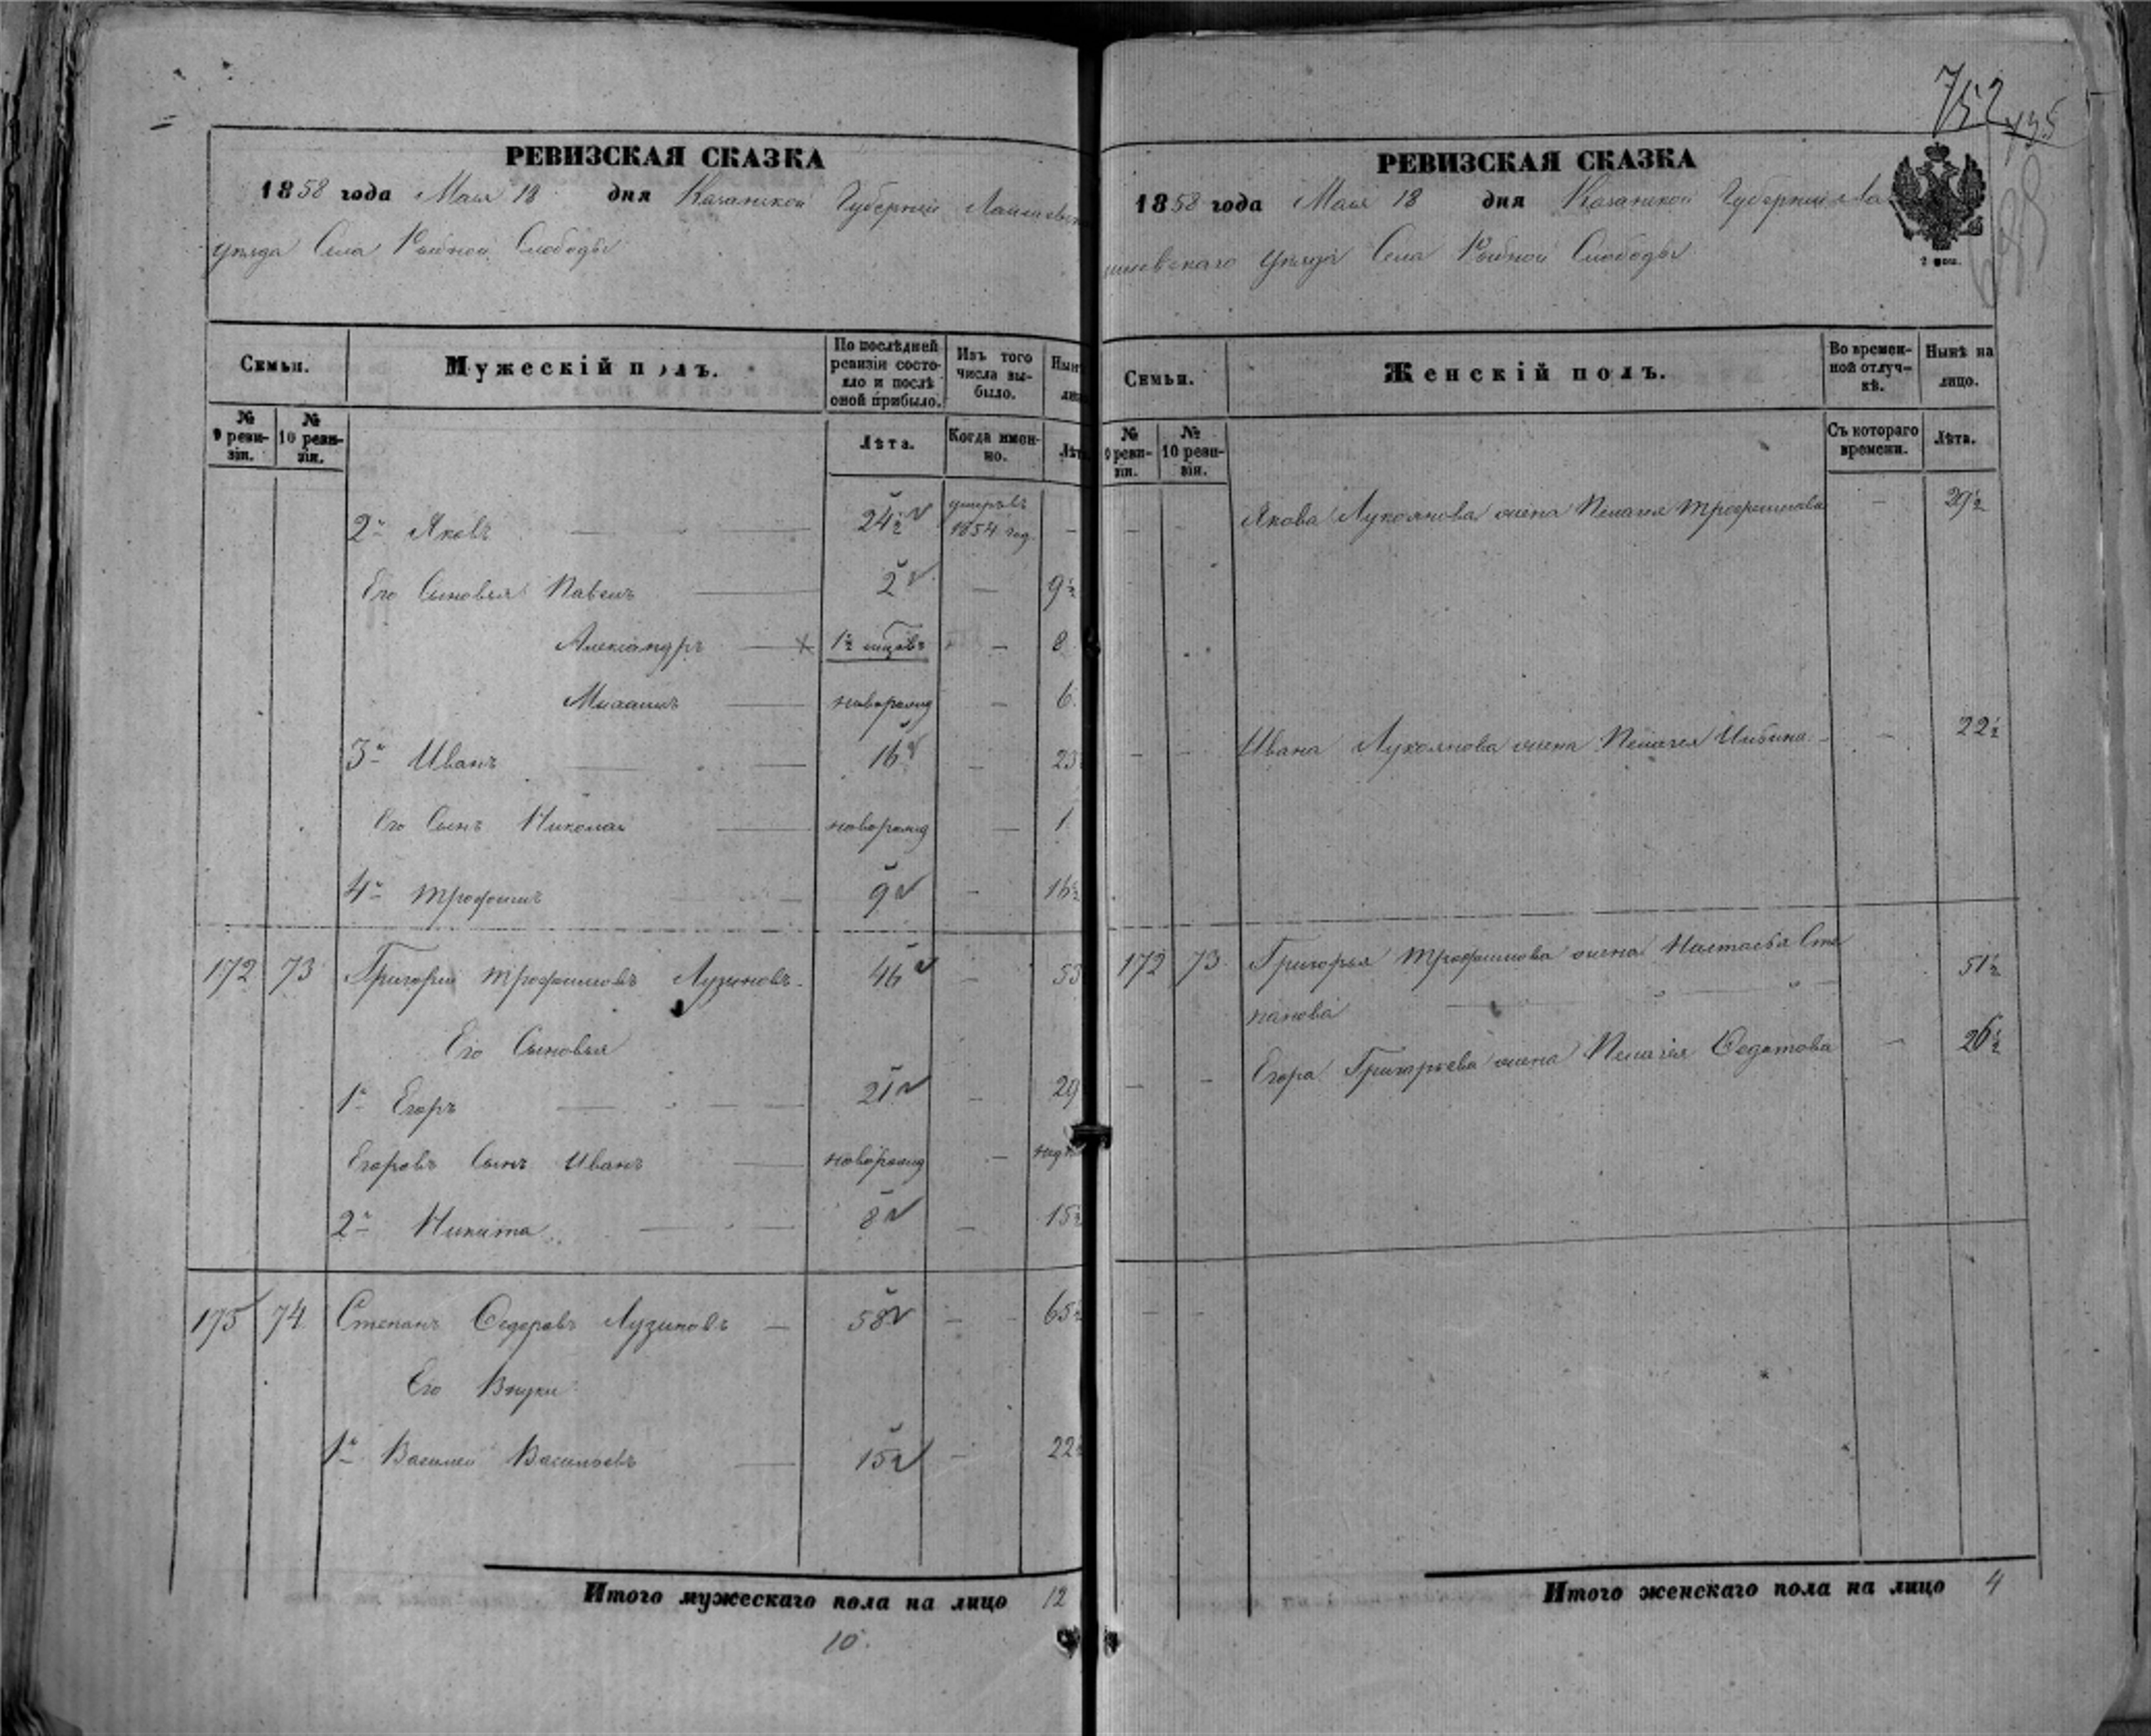 752
195
РЕВИЗСКАЯ СКАЗКА
1858 года Мая 18 дня Казанской Губернии Лаишевск
уѣзда Села Рыбной Слободы
Семьи.
Мужескій полъ.
По послѣдней ревизіи состояло и послѣ оной прибыло.
Изъ того числа выбыло.
Нын
№ 9 ревизіи.
№ 10 ревизіи.
Лѣта.
Когда именно.
Лѣт
2й Яковъ 24½ умеръ въ 1854 год. —
Его Сыновья Павелъ 2 — 9½
Александръ 1½ — 8
Михаилъ новорожд — 6
3й Иванъ 16 — 23
Его Сынъ Николай новорожд — 1
4й Трофимъ 9 — 16½
172 73 Григорій Трофимовъ Лузиновъ 46 — 53
Его Сыновья
1й Егоръ 21 — 29
Егоровъ Сынъ Иванъ новорожд —
2й Никита 8 — 15½
175 74 Степанъ Федоровъ Лузиновъ — 58 — 65½
Его Внуки
1й Василей Васильевъ 15 — 22
Итого мужескаго пола на лицо 12
10.
РЕВИЗСКАЯ СКАЗКА
1858 года Мая 18 дня Казанской Губерніи Ла
ишевскаго уѣзда Села Рыбной Слободы
Семьи.
Женскій полъ.
Во временной отлучкѣ.
Нынѣ на лицо.
№ 9 ревизіи.
№ 10 ревизіи.
Съ котораго времени.
Лѣта.
— — Якова Лукоянова жена Пелагея Трофимова — 29½
— — Ивана Лукоянова жена Пелагея Ильина — 22½
172 73. Григорья Трофимова жена Настасья Сте
панова 51½
— — Егора Григорьева жена Пелагея Федотова — 26½
— —
Итого женскаго пола на лицо 4